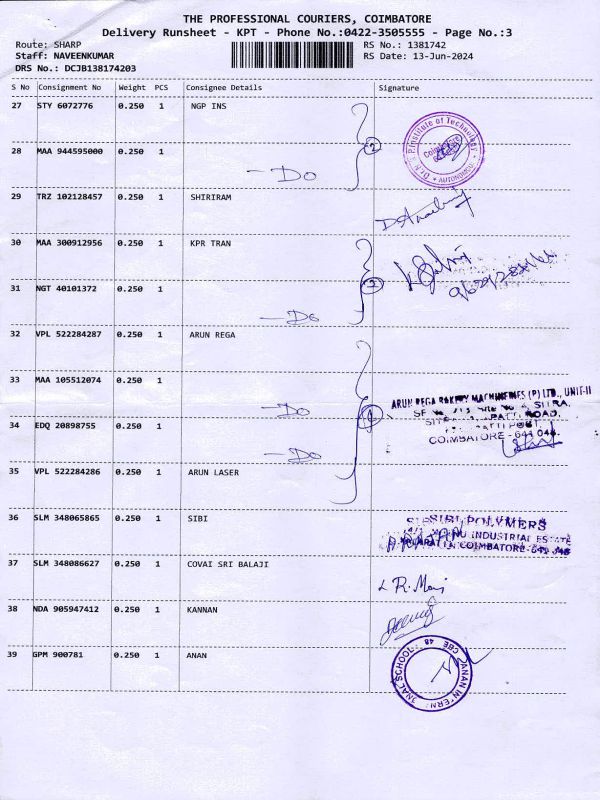 THE PROFESSIONAL COURIERS, COIMBATORE
Delivery Runsheet - KPT - Phone No.:0422-3505555 - Page No.:3
Route: SHARP RS No.: 1381742
Staff: NAVEENKUMAR RS Date: 13-Jun-2024
DRS No.: DCJB138174203
S No Consignment No Weight PCS Consignee Details Signature
27 STY 6072776 0.250 1 NGP INS
2
Institute of Technology
AUTONOMOUS
28 MAA 944595000 0.250 1
- Do
29 TRZ 102128457 0.250 1 SHRIRAM
30 MAA 300912956 0.250 1 KPR TRAN
2
31 NGT 40101372 0.250 1
- Do
32 VPL 522284287 0.250 1 ARUN REGA
33 MAA 105512074 0.250 1
- Do
4
ARUN REGA BAKERY MACHINERIES (P) LTD., UNIT-II
SITRA,
ROAD,
POST,
COIMBATORE - 641 044.
34 EDQ 20898755 0.250 1
- Do
35 VPL 522284286 0.250 1 ARUN LASER
36 SLM 348065865 0.250 1 SIBI
SIBI POLYMERS
INDUSTRIAL ESTATE
COIMBATORE
37 SLM 348086627 0.250 1 COVAI SRI BALAJI
R. Mani
38 NDA 905947412 0.250 1 KANNAN
39 GPM 900781 0.250 1 ANAN
ANAN INTERNATIONAL SCHOOL
CBE 48